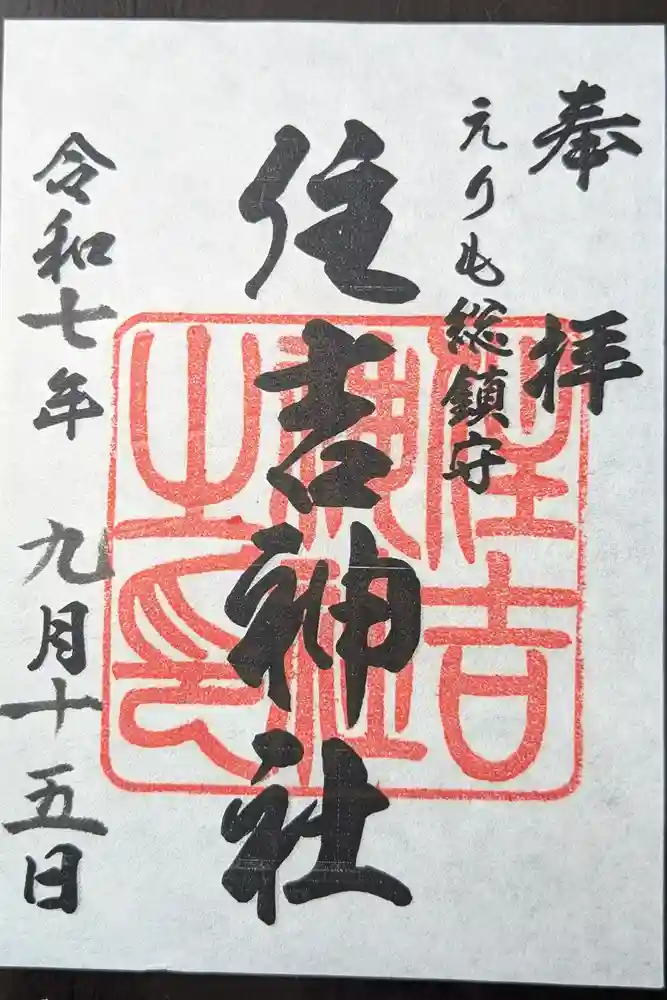 奉拝
えりも総鎮守
住吉神社
住吉
神社
之印
令和七年 九月十五日